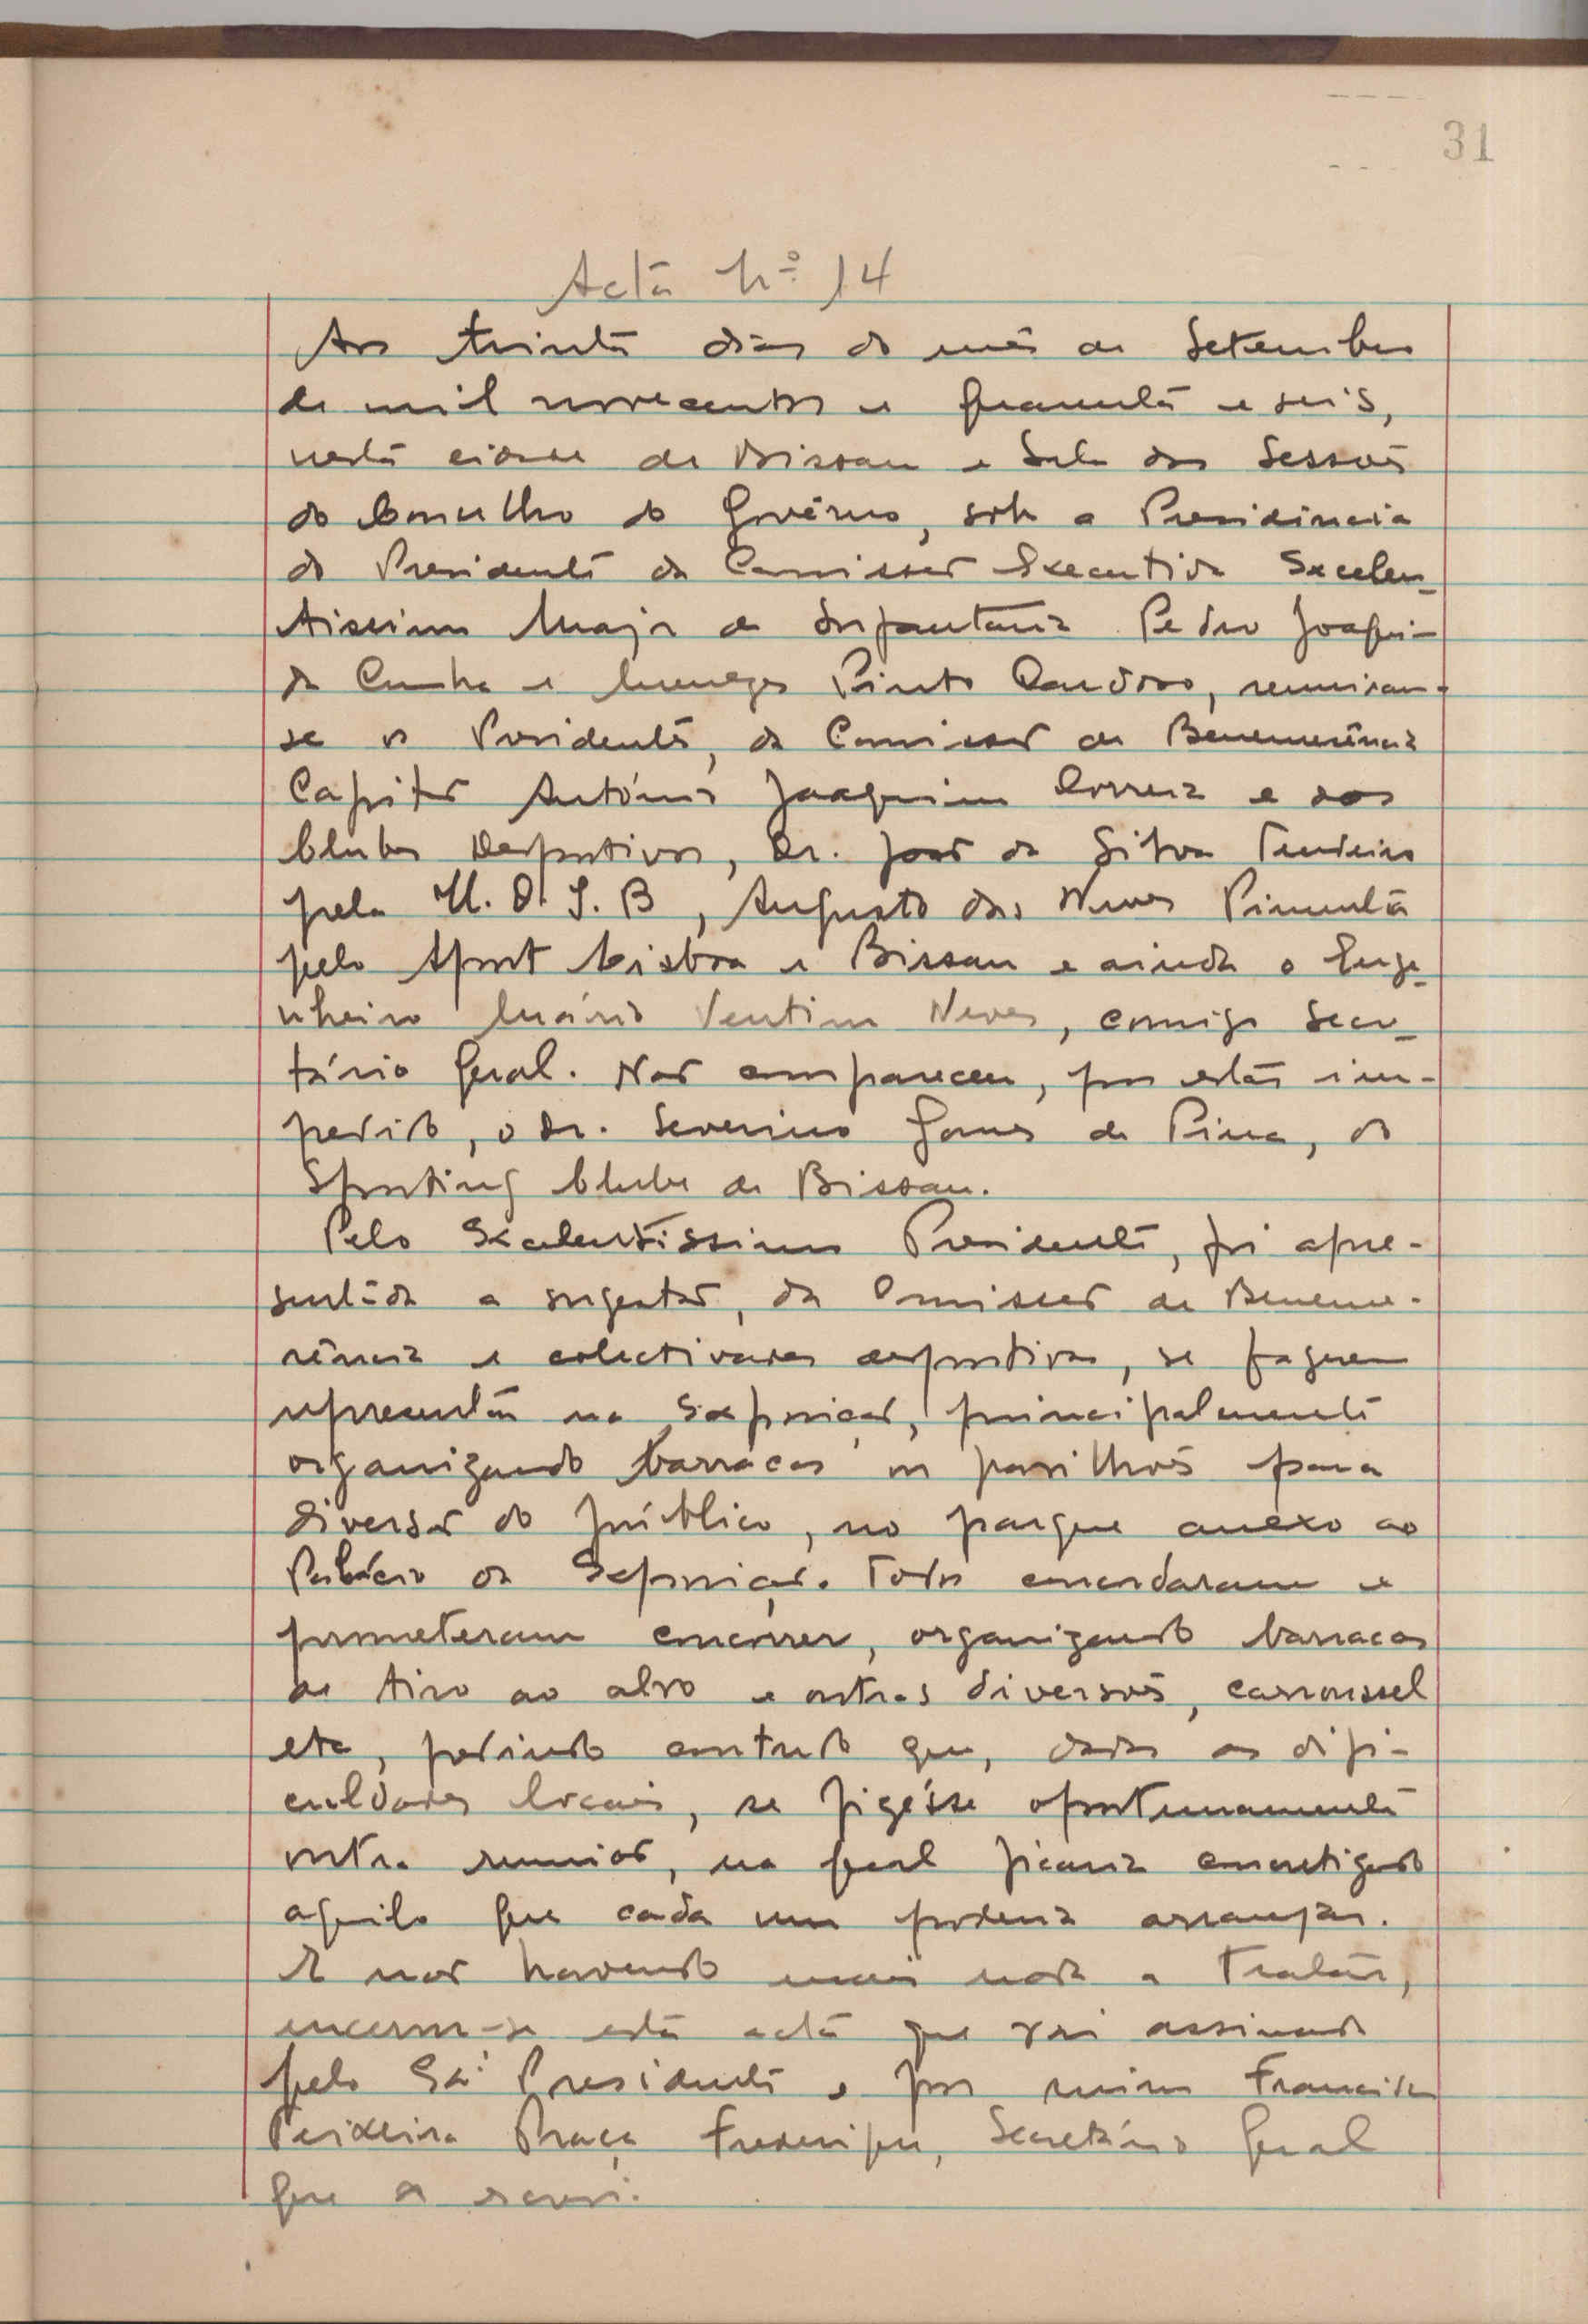 31
Acta Nº 14
Aos trinta dias do mês de Setembro
de mil novecentos e quarenta e seis,
nesta cidade de Bissau e Sala das Sessões
do Conselho do Govêrno, sob a Presidência
do Presidente da Comissão Executiva Excelen-
tissimo Major de Infantaria Pedro Joaquim
da Cunha e Menezes Pinto Cardoso, reuniram-
se os Presidentes, da Comissão de Benemerência
Capitão António Joaquim Correia e dos
Clubes Desportivos, Dr. João da Silva
pela U. D. I. B, Augusto das Neves Pimenta
pelo Sport Lisboa e Bissau e ainda o Enge-
nheiro Mário Ventim Neves, comigo Secre-
tário Geral. Não compareceu, por estar im-
pedido, o dr. Severino Gomes de Pina, do
Sporting Clube de Bissau.
Pelo Excelentissimo Presidente, foi apre-
sentada a sugestão, da Comissão de Beneme-
rência e colectividades desportivas, se fazerem
representar na Exposição, principalmente
organizando barracas ou pavilhões para
diversão do público, no parque anexo ao
Palácio da Exposição. Todos concordaram e
prometeram concorrer, organizando barracas
de tiro ao alvo e outras diversões, carroussel
etc, pedindo contudo que, dadas as difi-
culdades locais, se fizésse oportunamente
outra reunião, na qual ficaria concretizado
aquilo que cada um poderia arranjar.
E não havendo mais nada a tratar,
encerrou-se esta acta que vai assinada
pelo Exº Presidente e por mim Francisco
Teixeira Praça, Secretário Geral
que a escrevi.